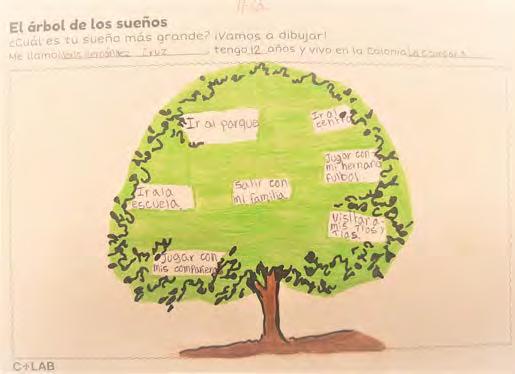 El árbol de los sueños
¿Cuál es tu sueño más grande? ¡Vamos a dibujar!
Me llamo Hernández Cruz, tengo 12 años y vivo en la Colonia
Ir al parque
Ir al
centro
Jugar con
mi hermano
futbol.
Ir a la
escuela.
Salir con
mi familia
Visitar a
mis Tíos y
Tías.
Jugar con
mis compañeros
C+LAB